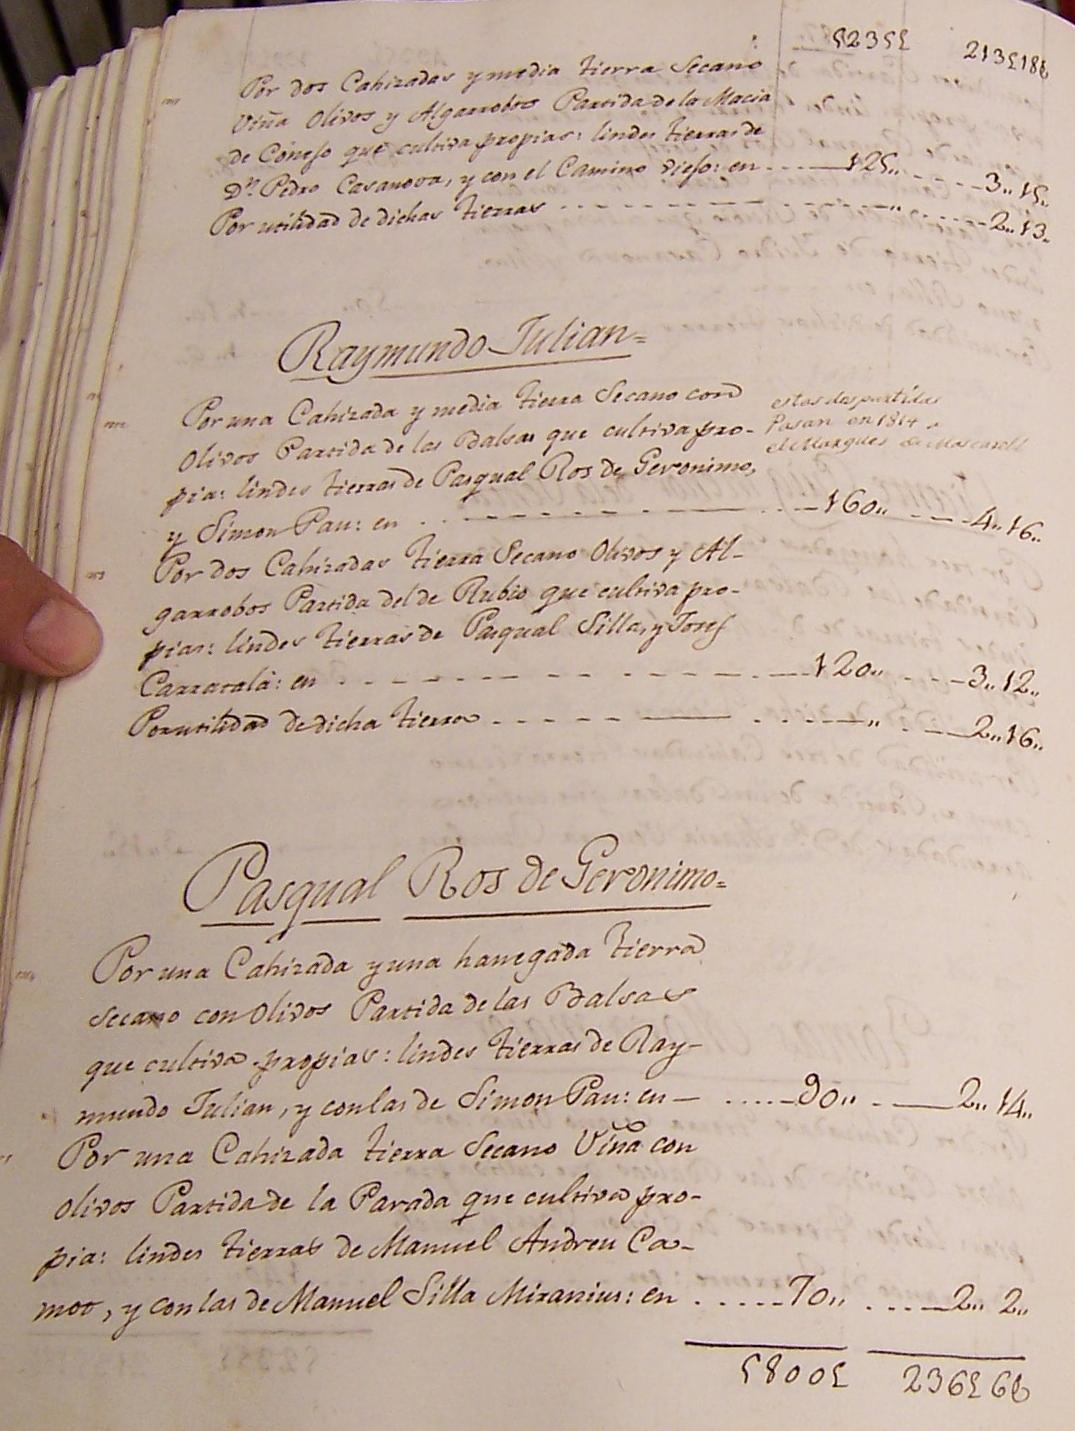 5235£ 213£18§
Por dos Cahizadas y media tierra Secano
Viña Olivos y Algarrobos Partida de la Macia
de Conejo que cultiva propias: lindes tierras de
Dn. Pedro Casanova, y con el Camino viejo: en 125,, 3,, 15,,
Por utilidad de dichas tierras ,, 2,, 13,,
Raymundo Julian=
Por una Cahizada y media tierra Secano con
Olivos Partida de las Balsas que cultiva pro-
pia: lindes tierras de Pasqual Ros de Geronimo,
y Simon Pau: en 160,, 4,, 16,,
estas dos partidas
Pasan en 1814 a
el Marques de Mascarell
Por dos Cahizadas tierra Secano Olivos y Al-
garrobos Partida del de Rubio que cultiva pro-
pias: lindes tierras de Pasqual Silla, y Josef
Carratalá: en 120,, 3,, 12,,
Por utilidad de dicha tierra ,, 2,, 16,,
Pasqual Ros de Geronimo=
Por una Cahizada y una hanegada tierra
Secano con Olivos Partida de las Balsas
que cultiva propias: lindes tierras de Ray-
mundo Julian, y con las de Simon Pau: en 90,, 2,, 14,,
Por una Cahizada tierra Secano Viña con
Olivos Partida de la Parada que cultiva pro-
pia: lindes tierras de Manuel Andreu Ca-
mot, y con las de Manuel Silla Miranius: en 70,, 2,, 2,,
5800£ 236£9§